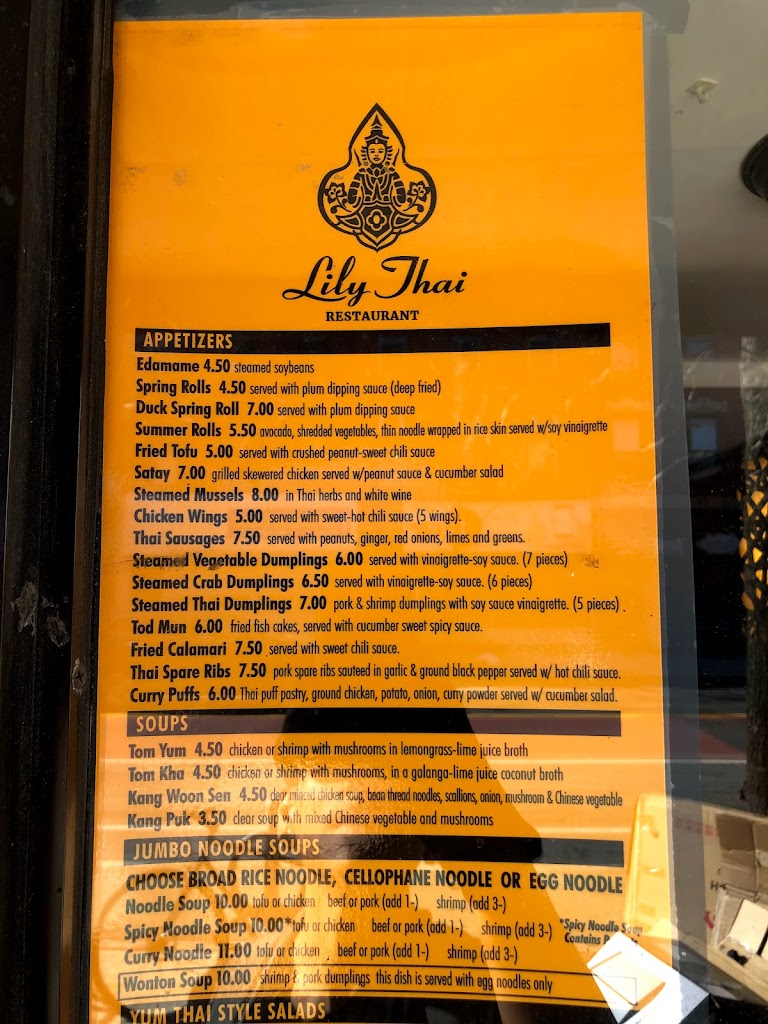 Lily Thai
RESTAURANT
APPETIZERS
Edamame 4.50 steamed soybeans
Spring Rolls 4.50 served with plum dipping sauce (deep fried)
Duck Spring Roll 7.00 served with plum dipping sauce
Summer Rolls 5.50 avocado, shredded vegetables, thin noodle wrapped in rice skin served w/soy vinaigrette
Fried Tofu 5.00 served with crushed peanut-sweet chili sauce
Satay 7.00 grilled skewered chicken served w/peanut sauce & cucumber salad
Steamed Mussels 8.00 in Thai herbs and white wine
Chicken Wings 5.00 served with sweet-hot chili sauce (5 wings).
Thai Sausages 7.50 served with peanuts, ginger, red onions, limes and greens.
Steamed Vegetable Dumplings 6.00 served with vinaigrette-soy sauce. (7 pieces)
Steamed Crab Dumplings 6.50 served with vinaigrette-soy sauce. (6 pieces)
Steamed Thai Dumplings 7.00 pork & shrimp dumplings with soy sauce vinaigrette. (5 pieces) .
Tod Mun 6.00 fried fish cakes, served with cucumber sweet spicy sauce.
Fried Calamari 7.50 served with sweet chili sauce.
Thai Spare Ribs 7.50 pork spare ribs sauteed in garlic & ground black pepper served w/ hot chili sauce.
Curry Puffs 6.00 Thai puff pastry, ground chicken, potato, onion, curry powder served w/ cucumber salad.
SOUPS
Tom Yum 4.50 chicken or shrimp with mushrooms in lemongrass-lime juice broth
Tom Kha 4.50 chicken or shrimp with mushrooms, in a galanga-lime juice coconut broth
Kang Woon Sen 4.50 clear minced chicken soup, bean thread noodles, scallions, onion, mushroom & Chinese vegetable
Kang Puk 3.50 clear soup with mixed Chinese vegetable and mushrooms
JUMBO NOODLE SOUPS
CHOOSE BROAD RICE NOODLE, CELLOPHANE NOODLE OR EGG NOODLE
Noodle Soup 10.00 tofu or chicken beef or pork (add 1-) shrimp (add 3-)
Spicy Noodle Soup 10.00*tofu or chicken beef or pork (add 1-) shrimp (add 3-) *Spicy Noodle Soup
Contains
Curry Noodle 11.00 tofu or chicken beef or pork (add 1-) shrimp (add 3-)
Wonton Soup 10.00 shrimp & pork dumplings this dish is served with egg noodles only
YUM THAI STYLE SALADS